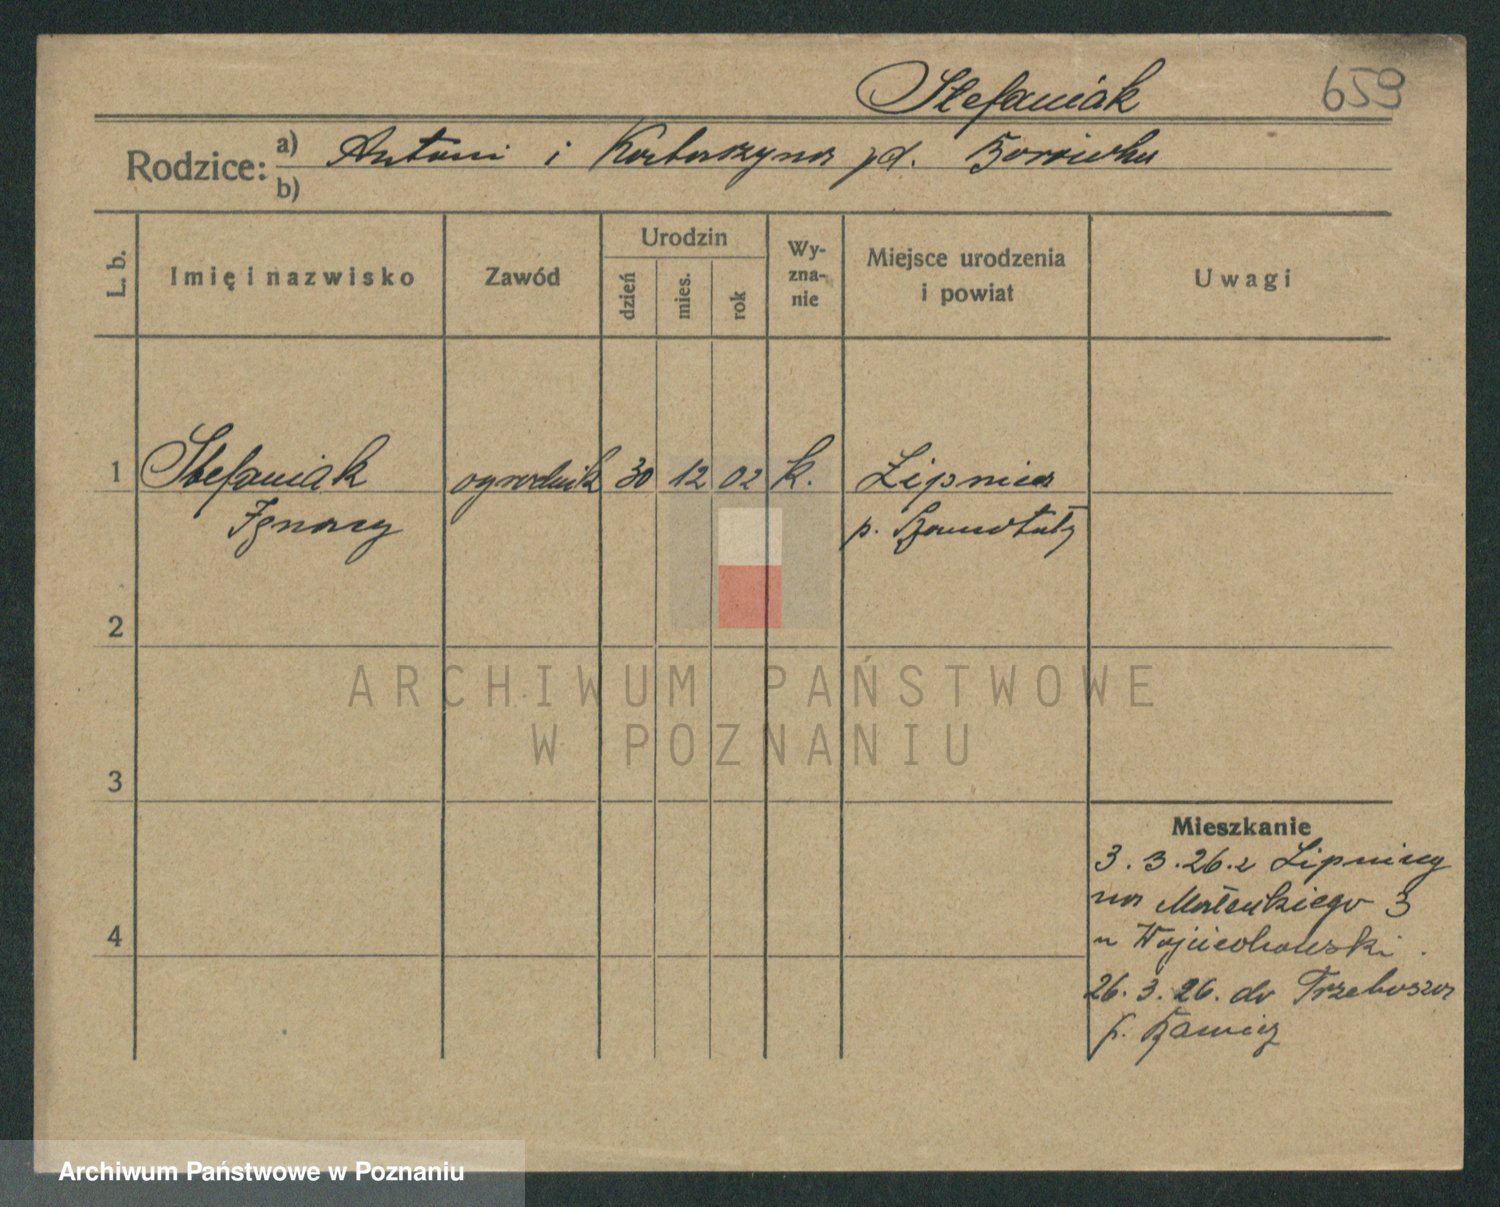 Stefaniak
659
Rodzice: a) Antoni i Katarzyna zd. Borówka
b)
L. b.
Imię i nazwisko
Zawód
Urodzin
dzień
mies.
rok
Wy-
zna-
nie
Miejsce urodzenia
i powiat
Uwagi
1 Stefaniak ogrodnik 30 12 02 k. Lipnica
Ignacy p. Szamotuły
2
3
4
ARCHIWUM PAŃSTWOWE
W POZNANIU
Mieszkanie
3.3.26. z Lipnicy
na Małeckiego 3
u Wojciechowski
26.3.26. do Trzebosza
p.
Archiwum Państwowe w Poznaniu